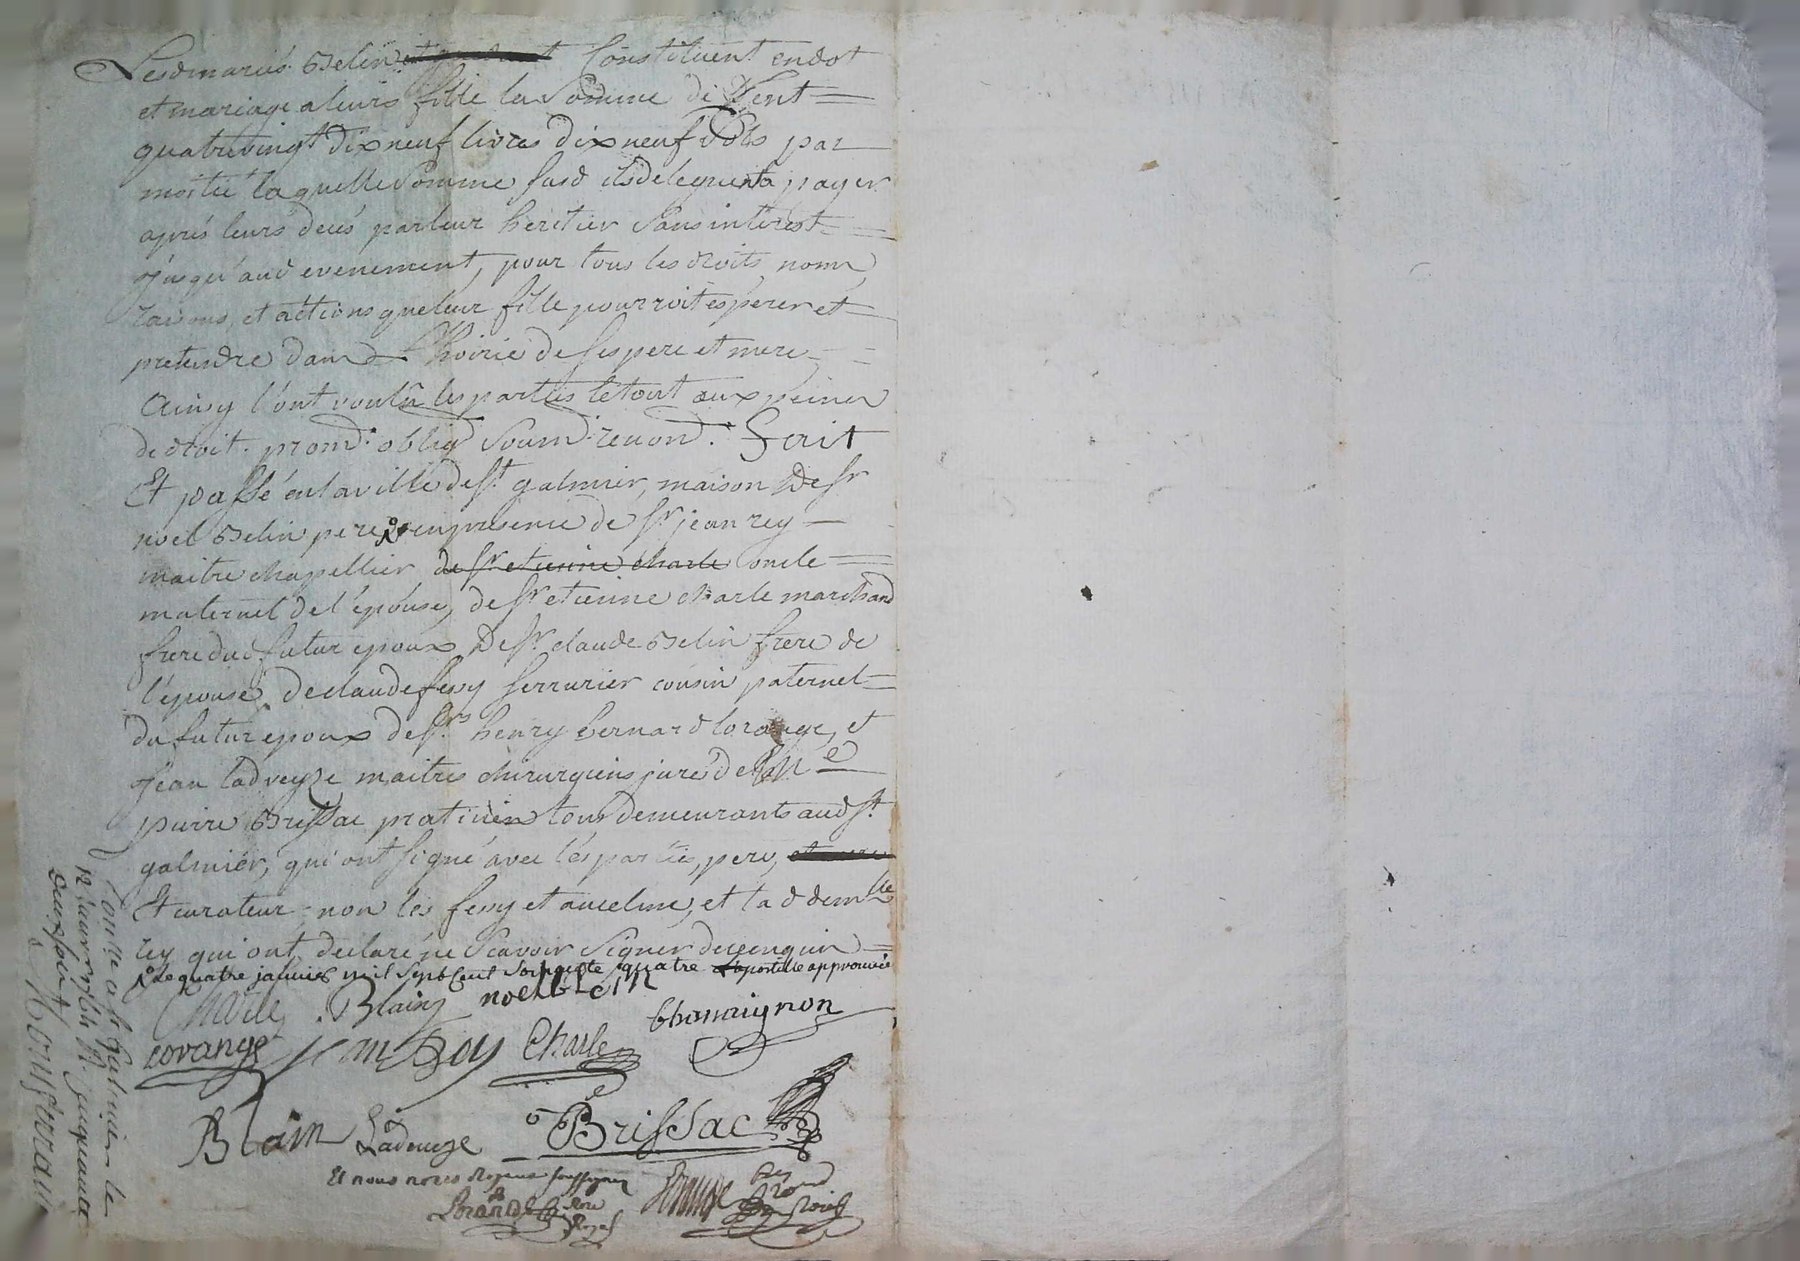 Lesdmariés Belin constituent endot
et mariage a leurs fille la somme de Cent
quatrevingt dix neuf livres dix neuf sols par
moitié laquelle somme susd ils deleguent a payer
aprés leurs decés par leur heritier sans interest
jusqu'aud evenement, pour tous les droits noms
raisons, et actions que leur fille pourroit espérer et
pretendre dans l'hoirie de ses pere et mere
Ainsy l'ont voulû les parties le tout aux peines
de droit. promd. obligd soumd. renond. Fait
Et passé en la ville de st. galmier, maison de sr
noel Belin pere en presence de sr. jean rey
maitre chapellier de sr etienne charle oncle
maternel de l'épouse, de sr etienne charle marchand
frere dud futur epoux de sr. claude Belin frere de
l'épouse, de claude fessy serrurier cousin paternel
du futur epoux de srs. henry bernard lorange, et
jean ladveyze maitres chirurgiens jurés de Me
pierre Brissac praticien tous demeurants aud st.
galmier, qui ont signé avec les parties, pere, et mere
Et curateur non les fessy et anceline, et lad demlle
rey qui ont declaré ne scavoir signer de ce enquis
le quatre janvier mil sept cent soixante quatre apostille approuvée
Charle Blain noel blein
Chanaignon
Lorange jean Rey Charle
Blain Ladveze Brissac
Et nous nores Royaux soussignés
Royal
Conllé a st Galmier le
12 janvier 1764 R.
deux sols